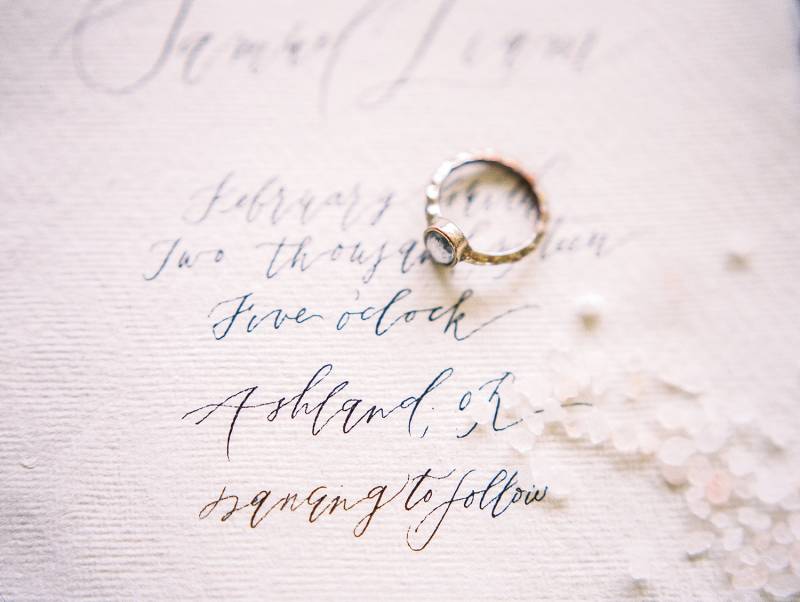 Samuel Liam
February
Two thousand
Five o'clock
Ashland, OR
Dancing to follow